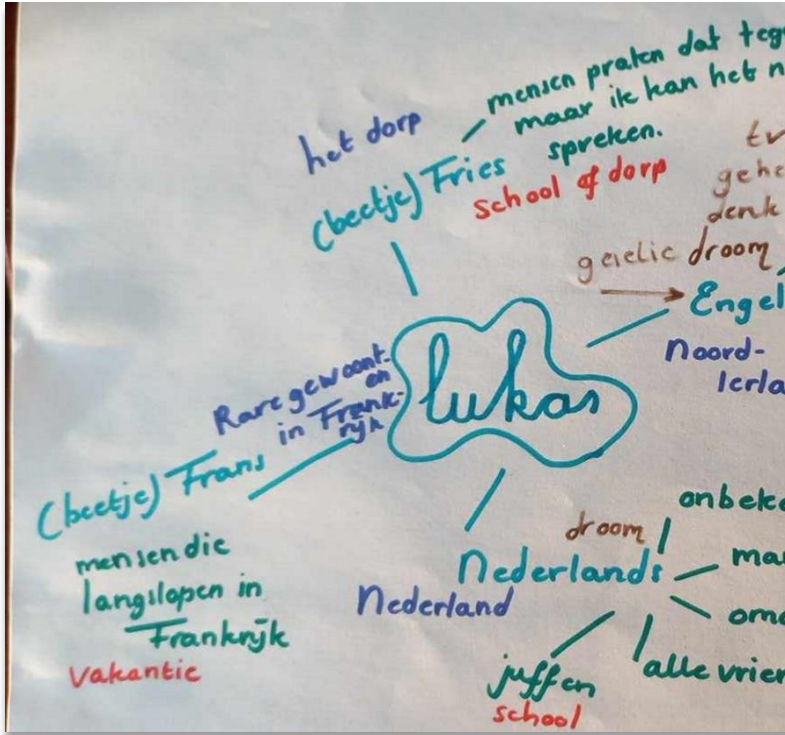 mensen praten dat teg
maar ik kan het n
spreken.
het dorp
(beetje) Fries
school of dorp
tv
gehe
denk
droom
Engel
Noord-
Ierla
lukas
Rare gewoont-
en
in Frank-
rijk
(beetje) Frans
mensen die
langslopen in
Frankrijk
vakantie
droom
Nederlands
Nederland
onbeke
ma
oma
alle vrien
juffen
school